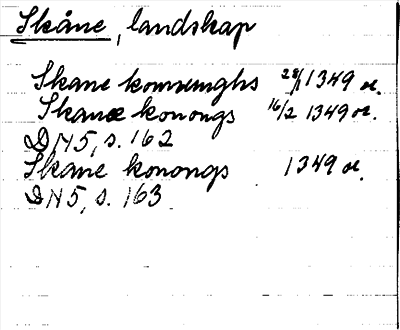 Skåne, landskap
Skane konunghs 28/1 1349 or.
Skanæ konongs 16/2 1349 or.
DN 5, s. 162
Skane konongs 1349 or.
DN 5, s. 163